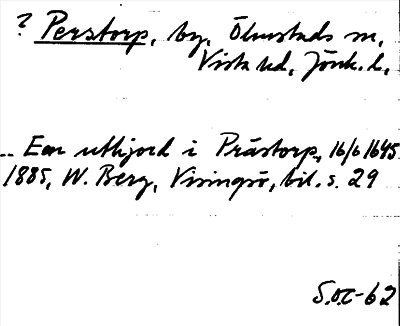 ? Perstorp, by, Ölmstads sn,
Vista hd, Jönk. l.
.. Een uthjord i Prästorp, 16/6 1645
1885, W. Berg, Visingsö, bil. s. 29
S.O.C-62